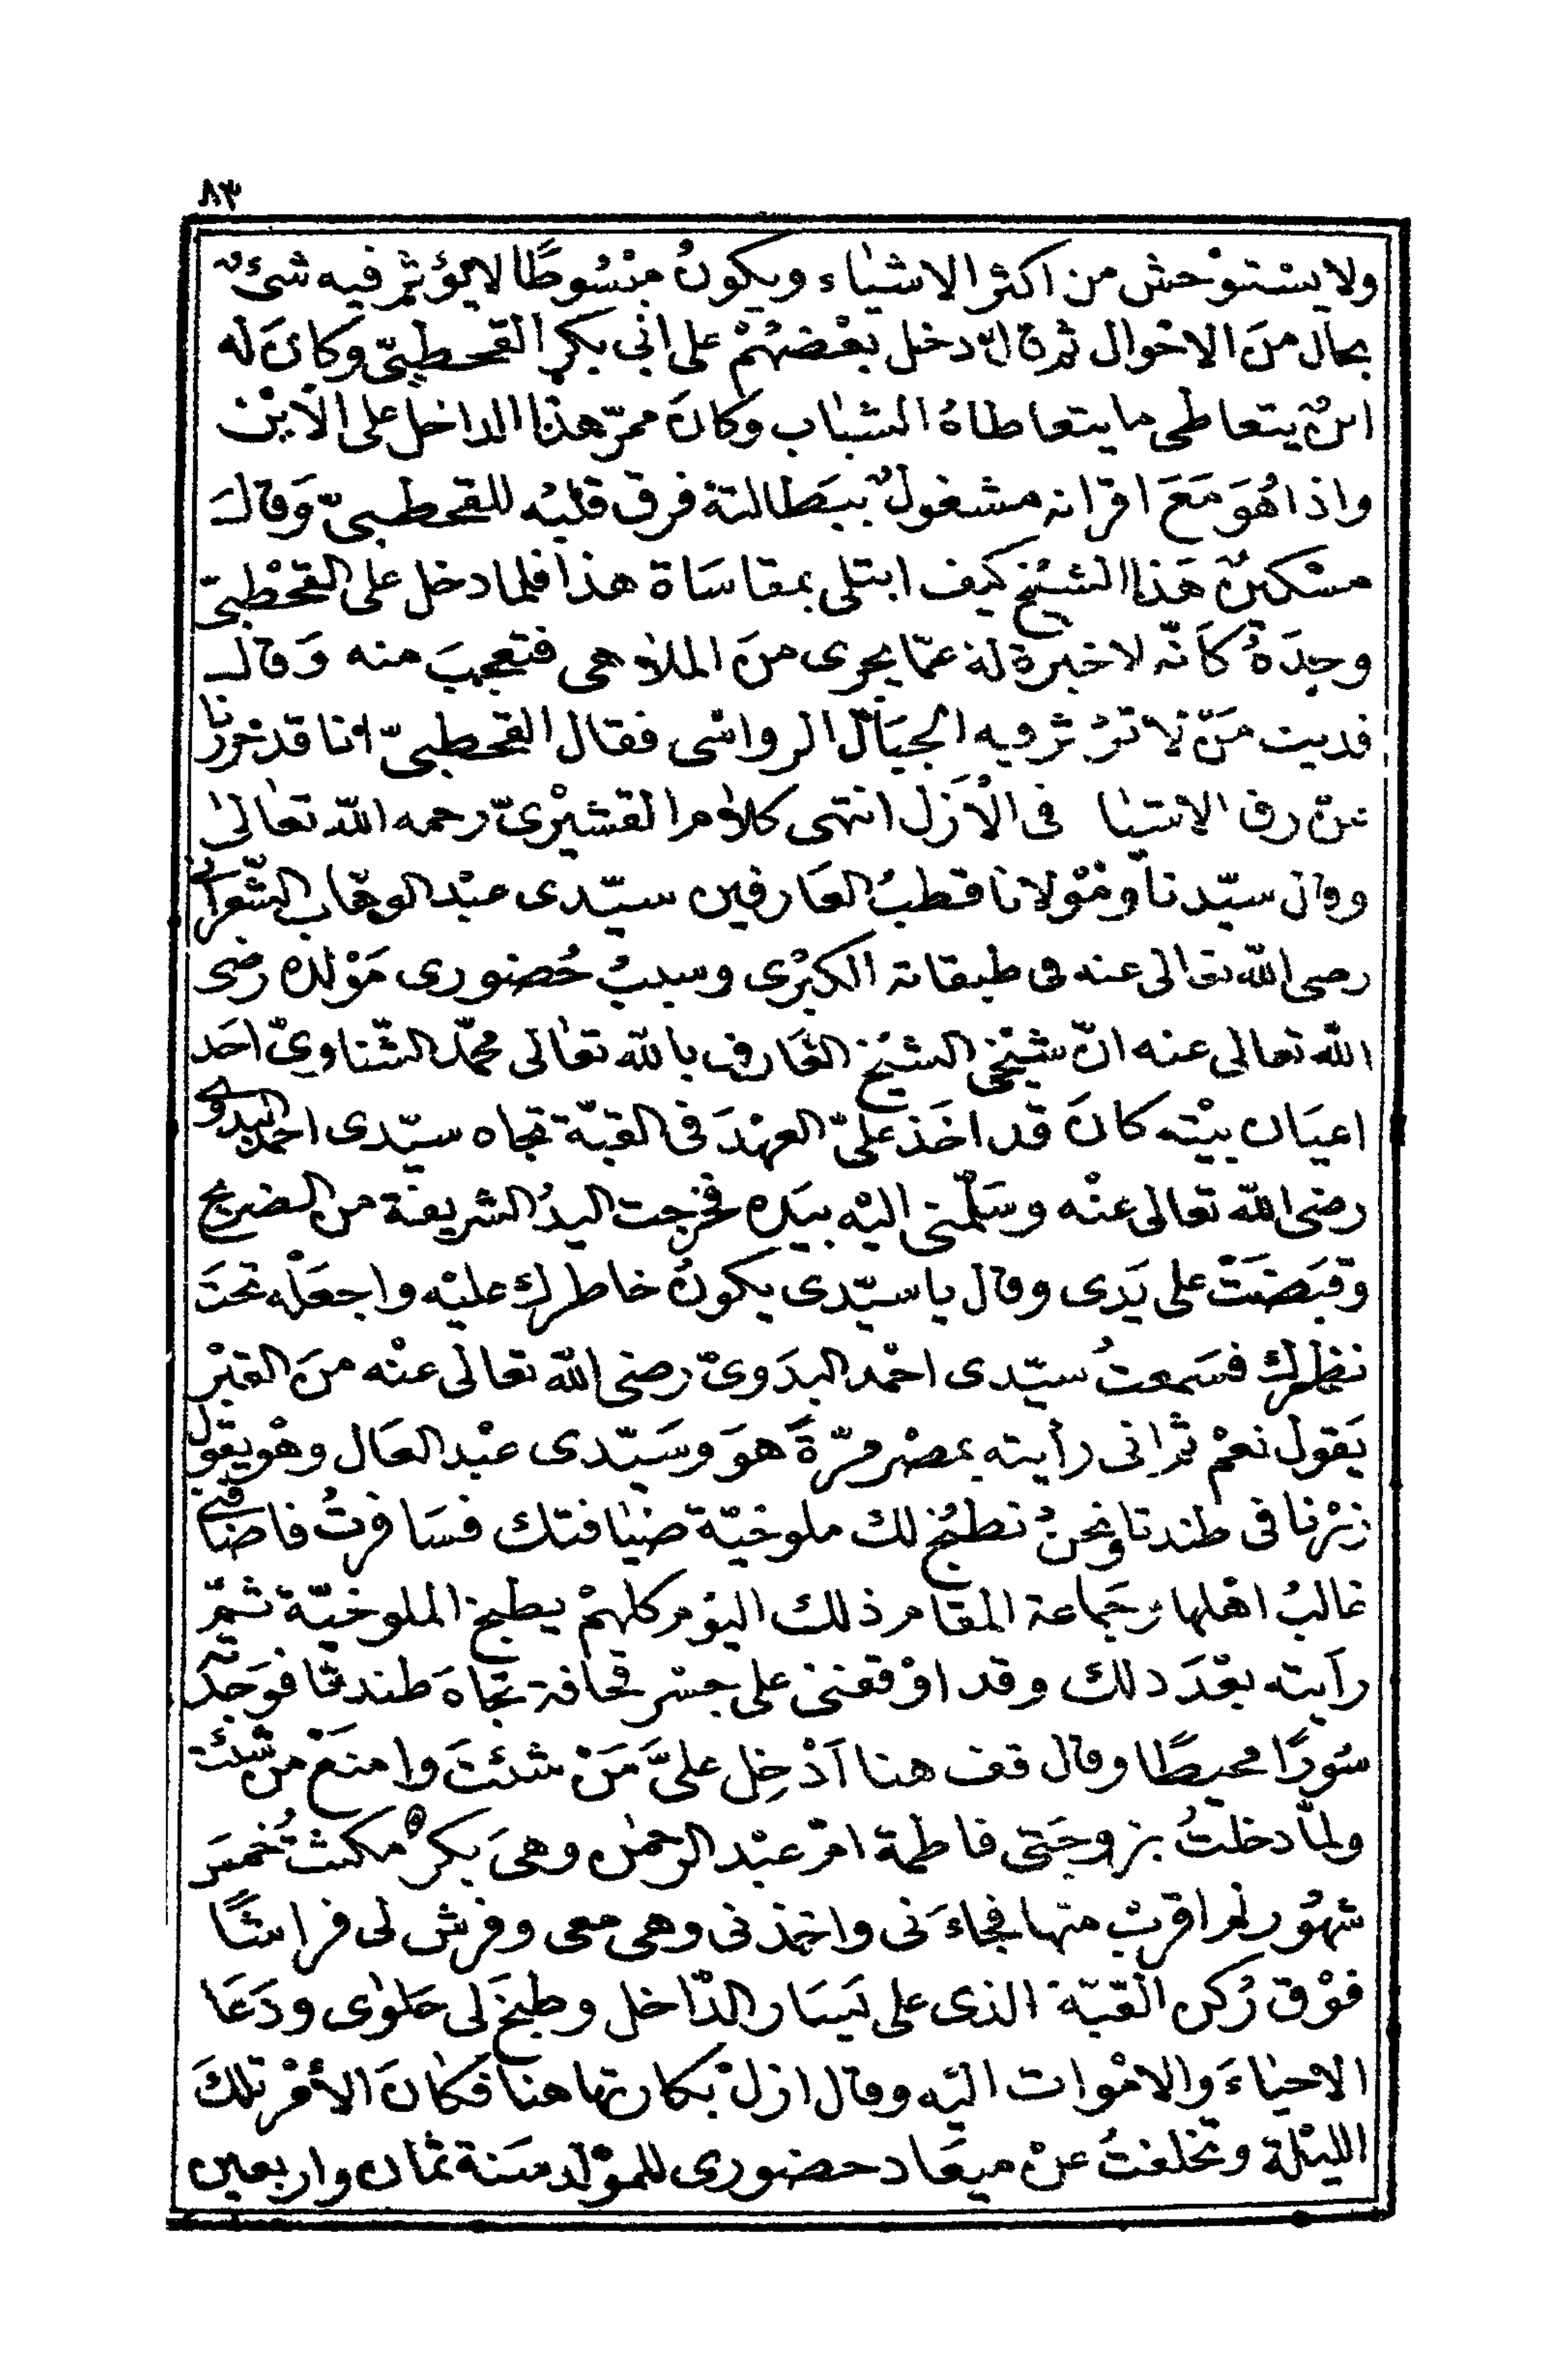 ٨٣
ولا يستوْحش من اكثر الاشياء ويكونُ مبْسُوطًا لا يؤثر فيه شئٌ
بحال منَ الاحْوال ثم قال دخل بعْضهُمْ على ابى بكر القحطبىّ وكانَ له
ابنٌ يتعاطى ما يتعاطاهُ الشباب وكانَ ممرّ هذا الداخل على الابْن
واذا هُوَ مَعَ اقرانه مشغولٌ ببَطالته فرق قلبُه للقحطبىّ وَقالَ
مسْكينٌ هَذا الشيْخ كيف ابتلى بمقاسَاة هذا فلما دخل على القحْطبىّ
وجدَهُ كأنّه لا خبرة له عمّا يجرى منَ الملاهى فتعجبَ منه وَقال
فديت مَنْ لا تؤثر فيه الجبَال الرواسى فقال القحطبىّ انا قد حررنا
عن رق الاشيا فى الْاَزَل انتهى كلام القشيْرىّ رحمه الله تعالى
وقال سيّدنا ومَوْلانا قطبُ العَارفين سيّدى عبْد الوهّاب الشّعرانى
رضى الله تعالى عنه فى طبقاته الكبْرى وسببُ حُضورى مَوْلده رضى
الله تعالى عنه انّ شيْخى الشيْخ العَارف بالله تعالى محمّد الشّناوىّ احَد
اعيَان بيْته كانَ قد اخَذ علىّ العهْدَ فى القبّة تجاه سيّدى احمد البدوى
رضى الله تعالى عنْه وسَلّمنى اليْه بيَده فخرجت اليدُ الشريفة من الضريح
وقبَضَتْ على يَدى وقال يا سيّدى يكونُ خاطرك عليْه واجعَلْه تحتَ
نظرك فسَمعتُ سيّدى احْمد البدَوىّ رضى الله تعالى عنْه منَ القبْر
يَقول نعمْ ثم انى رأيته بمصْر مرّةً هوَ وسَيّدى عبْد العَال وهْو يقول
زرْنا فى طندتا ونحنُ نطبُخ لك ملوخيّة ضيافتك فسَافرتُ فاضافنى
غالبُ اهْلها وجَماعة المقام ذلك اليوْم كلهمْ يطبخ الملوخيّة ثمّ
رأيته بعْدَ ذلك وقد اوْقفنى على جسْر قحافة تجاهَ طندتا فوَجدته
سُورًا محيطًا وقال قف هنا اَدْخِل علىَّ مَنْ شئتَ وامنَعْ من شئت
ولمّا دخلتُ بزوجَتى فاطمة امّ عبْد الرحمٰن وهىَ بكر مكثتُ خمسَ
شهُور لم اقربْ منها فجاءَنى واخذنى وهى معى وفرش لى فراشًا
فوْق رُكن القبّة الذى على يَسَار الدّاخل وطبخَ لى حَلوٰى ودَعَا
الاحياءَ والامْوات اليْه وقال ازلْ بكارتها هنا فكانَ الأمْر تلكَ
الليْلة وتخلفتُ عنْ ميعَاد حضورى للموْلد سَنة ثمان واربعين